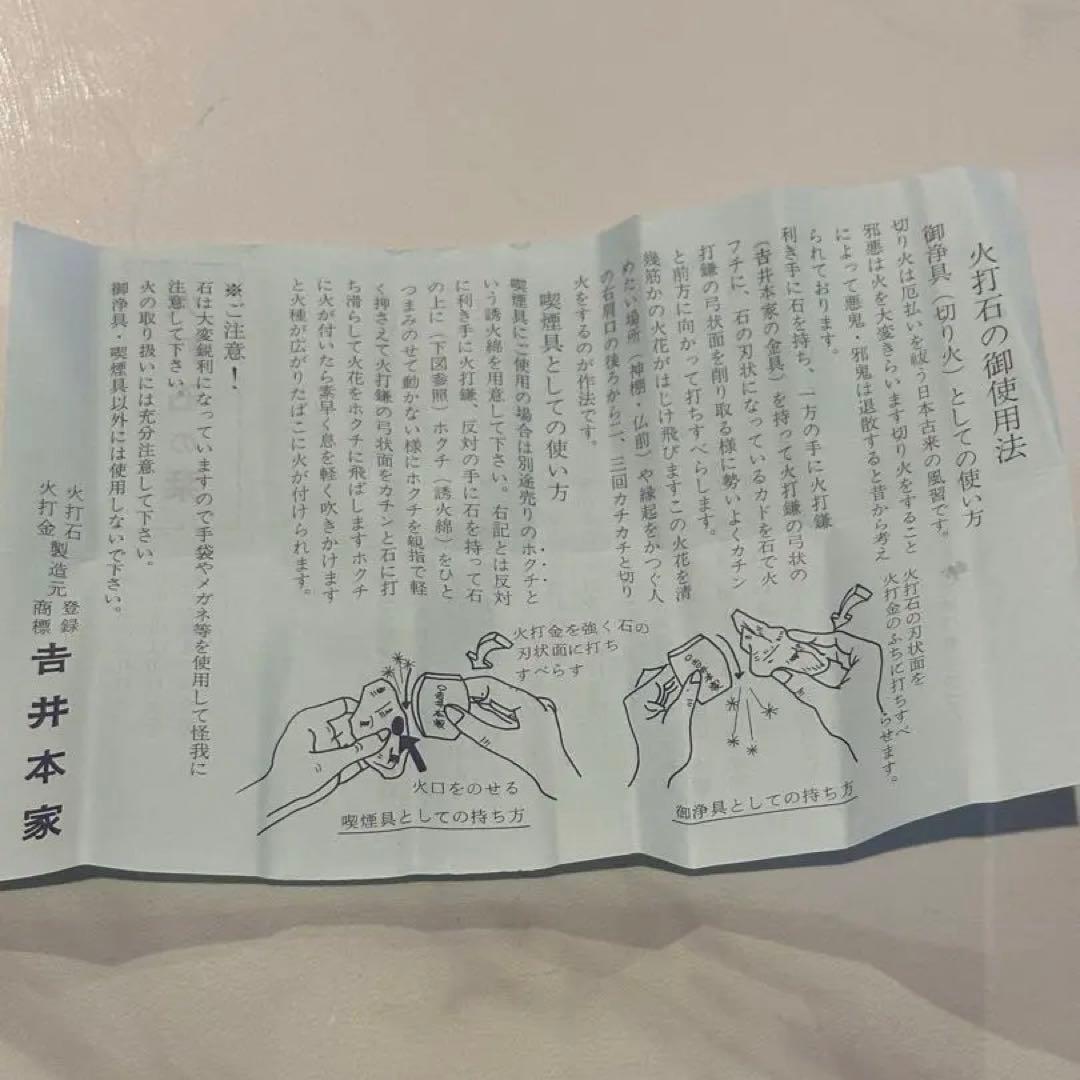 火打石の御使用法
御浄具（切り火）としての使い方
切り火は厄払いを祓う日本古来の風習です。
邪悪は火を大変きらいます切り火をすること
によって悪鬼・邪鬼は退散すると昔から考え
られております。
利き手に石を持ち、一方の手に火打鎌
（𠮷井本家の金具）を持って火打鎌の弓状の
フチに、石の刃状になっているカドを石で火
打鎌の弓状面を削り取る様に勢いよくカチン
と前方に向かって打ちすべらします。
幾筋かの火花がはじけ飛びますこの火花を清
めたい場所（神棚・仏前）や縁起をかつぐ人
の右肩口の後ろから二、三回カチカチと切り
火をするのが作法です。
火打石の刃状面を
火打金のふちに打ちすべ
らせます。
御浄具としての持ち方
喫煙具としての使い方
喫煙具にご使用の場合は別途売りのホクチと
いう誘火綿を用意して下さい。右記とは反対
に利き手に火打鎌、反対の手に石を持って石
の上に（下図参照）ホクチ（誘火綿）をひと
つまみのせて動かない様にホクチを親指で軽
く押さえて火打鎌の弓状面をカチンと石に打
ち滑らして火花をホクチに飛ばしますホクチ
に火が付いたら素早く息を軽く吹きかけます
と火種が広がりたばこに火が付けられます。
火打金を強く石の
刃状面に打ち
すべらす
火口をのせる
喫煙具としての持ち方
※ご注意！
石は大変鋭利になっていますので手袋やメガネ等を使用して怪我に
注意して下さい。
火の取り扱いには充分注意して下さい。
御浄具・喫煙具以外には使用しないで下さい。
火打石
火打金
製造元
登録
商標
𠮷井本家